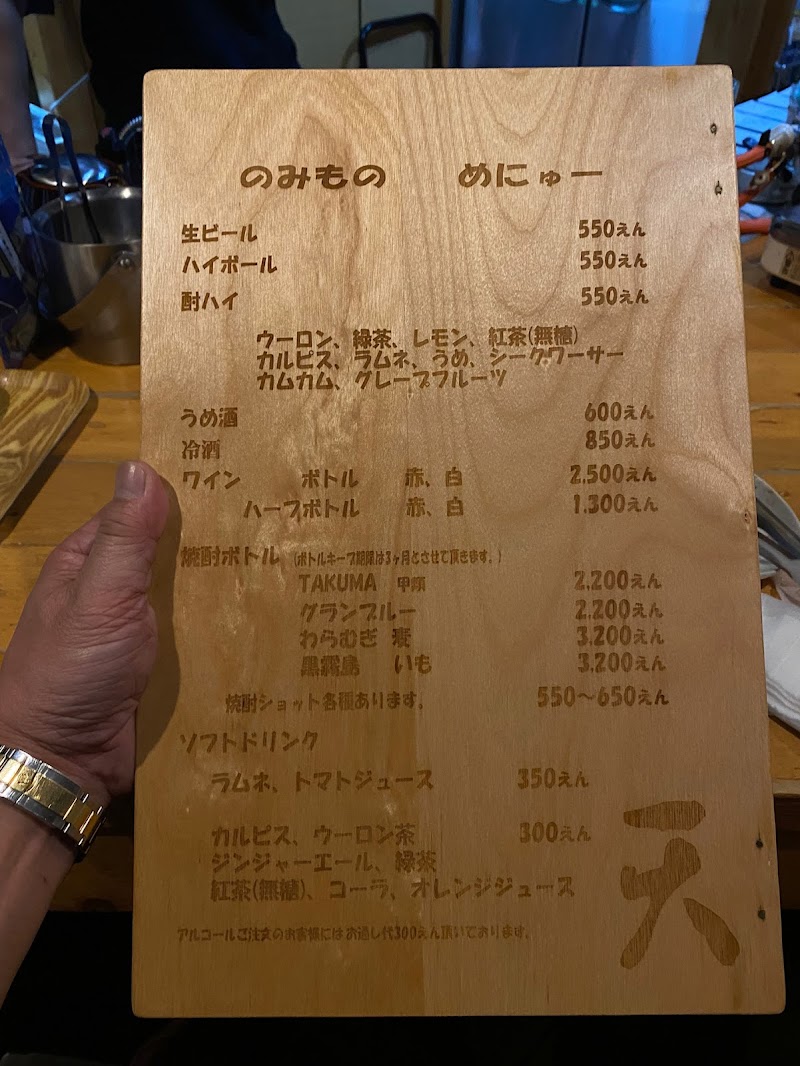 のみもの めにゅー
生ビール 550えん
ハイボール 550えん
酎ハイ 550えん
ウーロン、緑茶、レモン、紅茶(無糖)
カルピス、ラムネ、うめ、シークワーサー
カムカム、グレープフルーツ
うめ酒 600えん
冷酒 850えん
ワイン ボトル 赤、白 2,500えん
ハーフボトル 赤、白 1,300えん
焼酎ボトル (ボトルキープ期限は3ヶ月とさせて頂きます。)
TAKUMA 甲類 2,200えん
グランブルー 2,200えん
わらむぎ 麦 3,200えん
黒霧島 いも 3,200えん
焼酎ショット各種あります。 550〜650えん
ソフトドリンク
ラムネ、トマトジュース 350えん
カルピス、ウーロン茶 300えん
ジンジャーエール、緑茶
紅茶(無糖)、コーラ、オレンジジュース
天
アルコールご注文のお客様にはお通し代300えん頂いております。